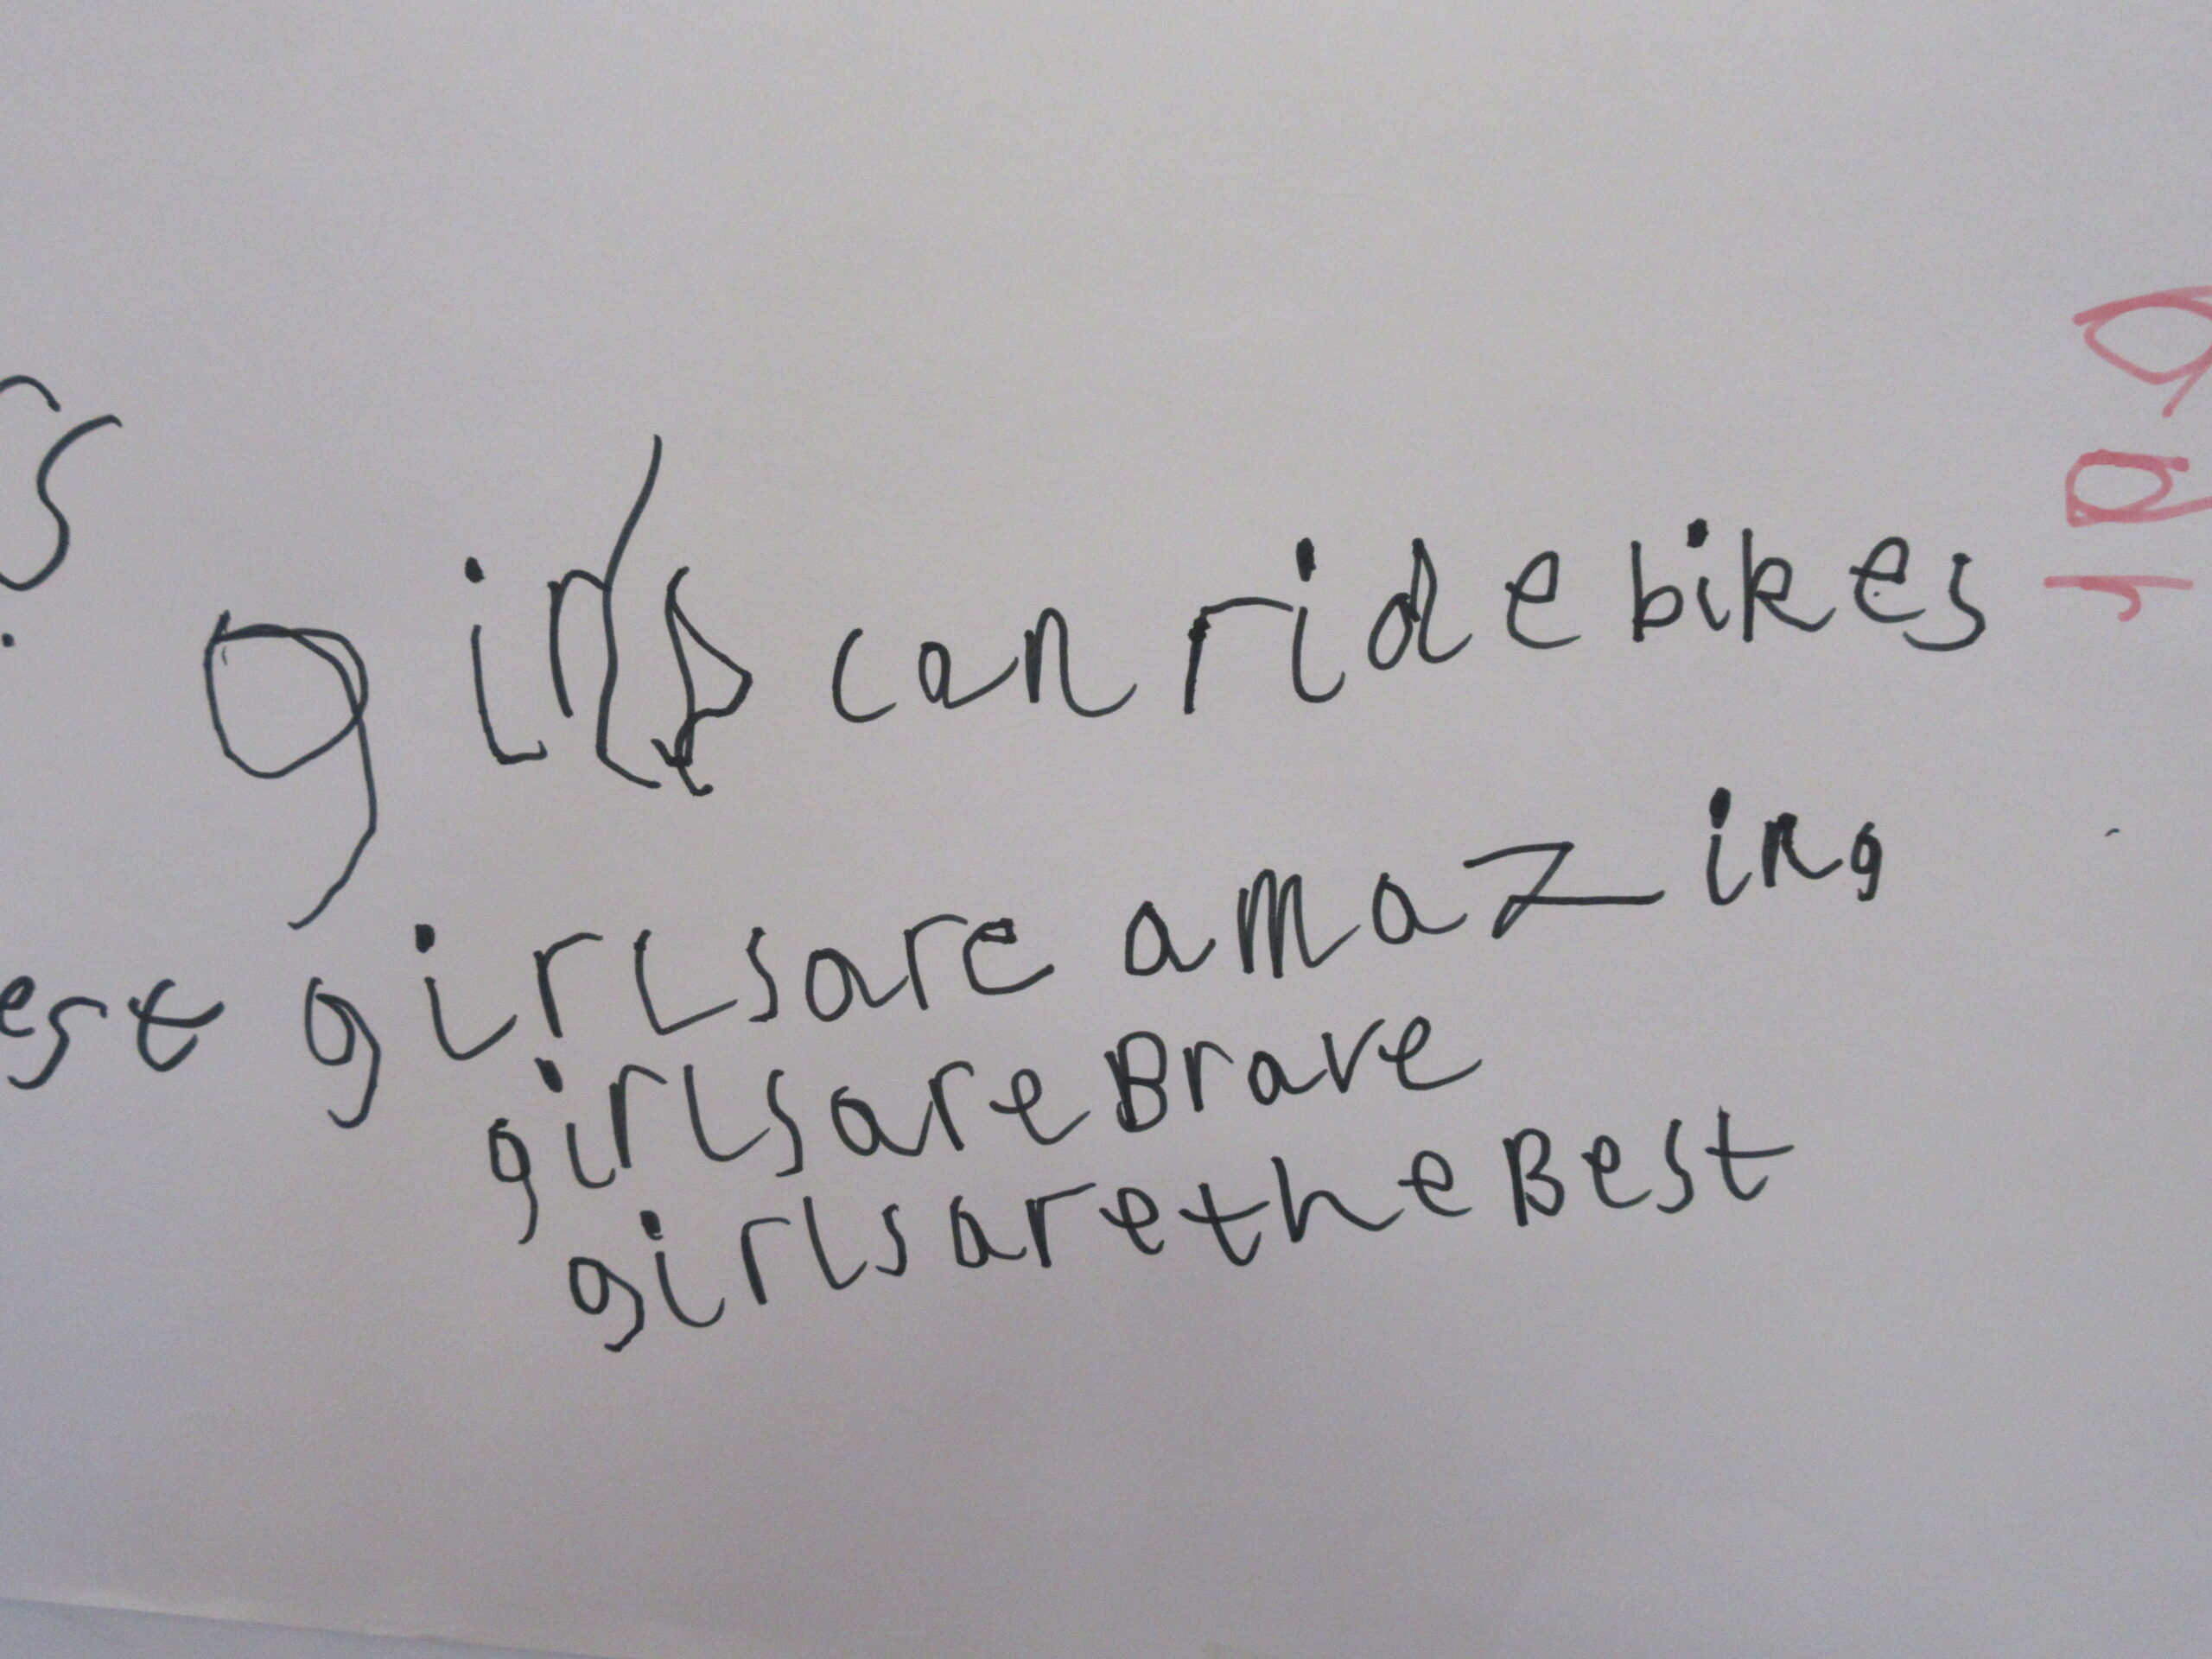 girls can ride bikes
est girls are amazing
girls are Brave
girls are the Best